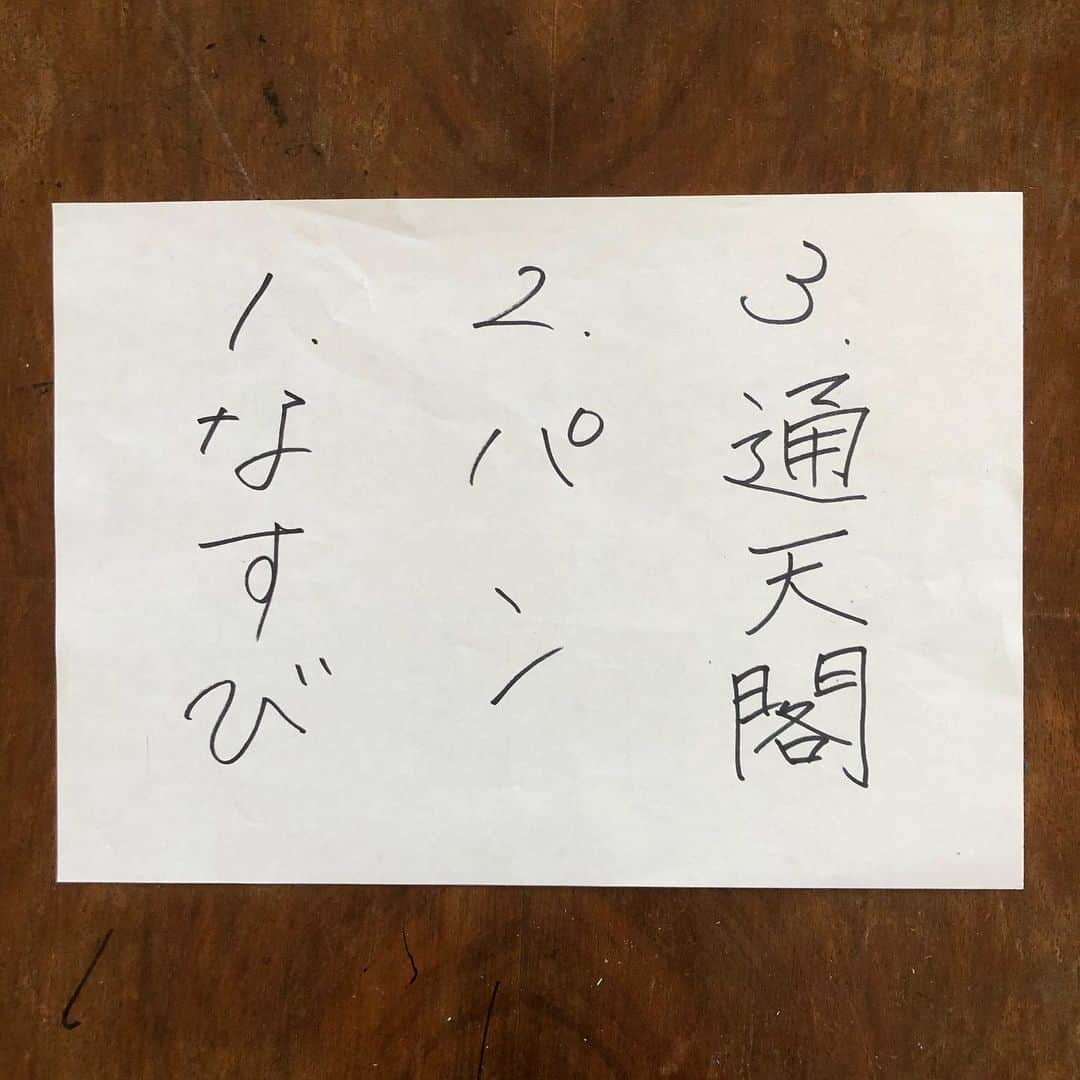 1. なすび
2. パン
3. 通天閣